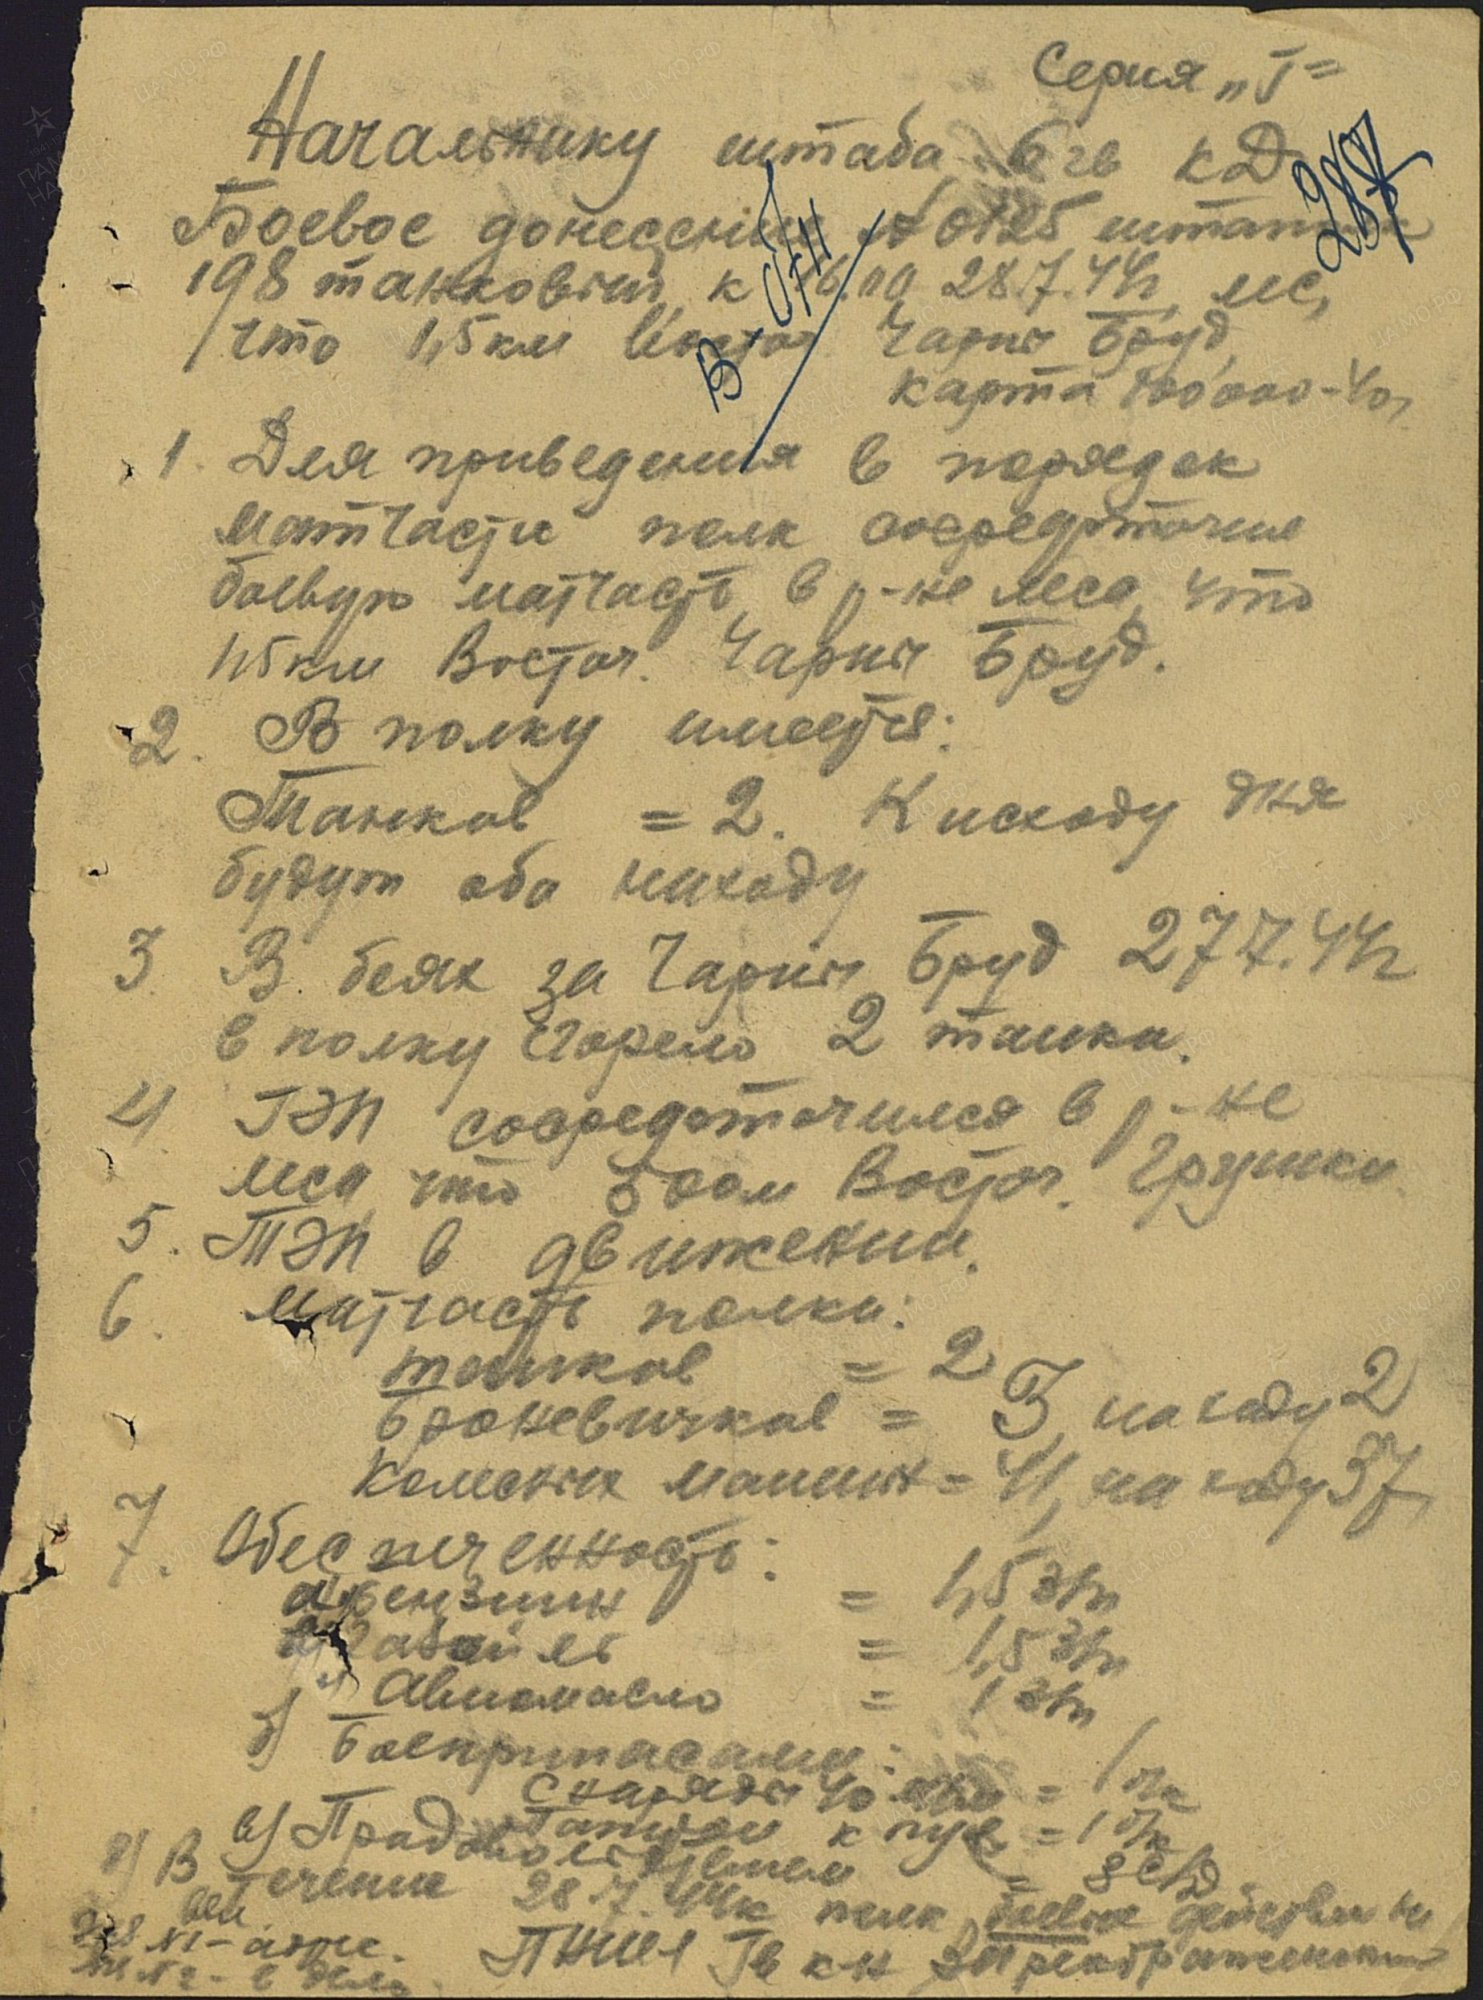 Серия „Г"
Начальнику штаба 6 гв КД
287
Боевое донесение № 0125 штатив
198 танковый, к 16.00 28.7.44г, лес,
что 1,5 км Восточ. Чарны Бруд,
карта 100000-40г.
1. Для приведения в порядок
матчасти полк сосредоточил
боевую матчасть в р-не леса, что
1,5 км Восточ. Чарны Бруд.
2. В полку имеется:
Танков = 2. К исходу дня
будут оба на ходу
3. В боях за Чарны Бруд 27.7.44г
в полку сгорело 2 танка.
4 ГЭП сосредоточился в р-не
леса, что 500м Восточ. Грушки.
5. ТЭП в движении.
6. Матчасть полка:
танков = 2
Броневичков = 3, на ходу 2
Колесных машин = 41, на ходу 37,
7. Обеспеченность:
а) бензин = 1,5 зп
газойль = 1,5 зп
Авиомасло = 1 зп
б) Боеприпасами:
снаряды 40 мм = 1 бк
Патроны к пул = 1 бк
в) Продовольствием = 8 с/д
г) В течение 28.7.44г полк боевые действия не
вел.
Экз №1 - адрес.
№2 - в дело.
ПНШ1 Гв к-н